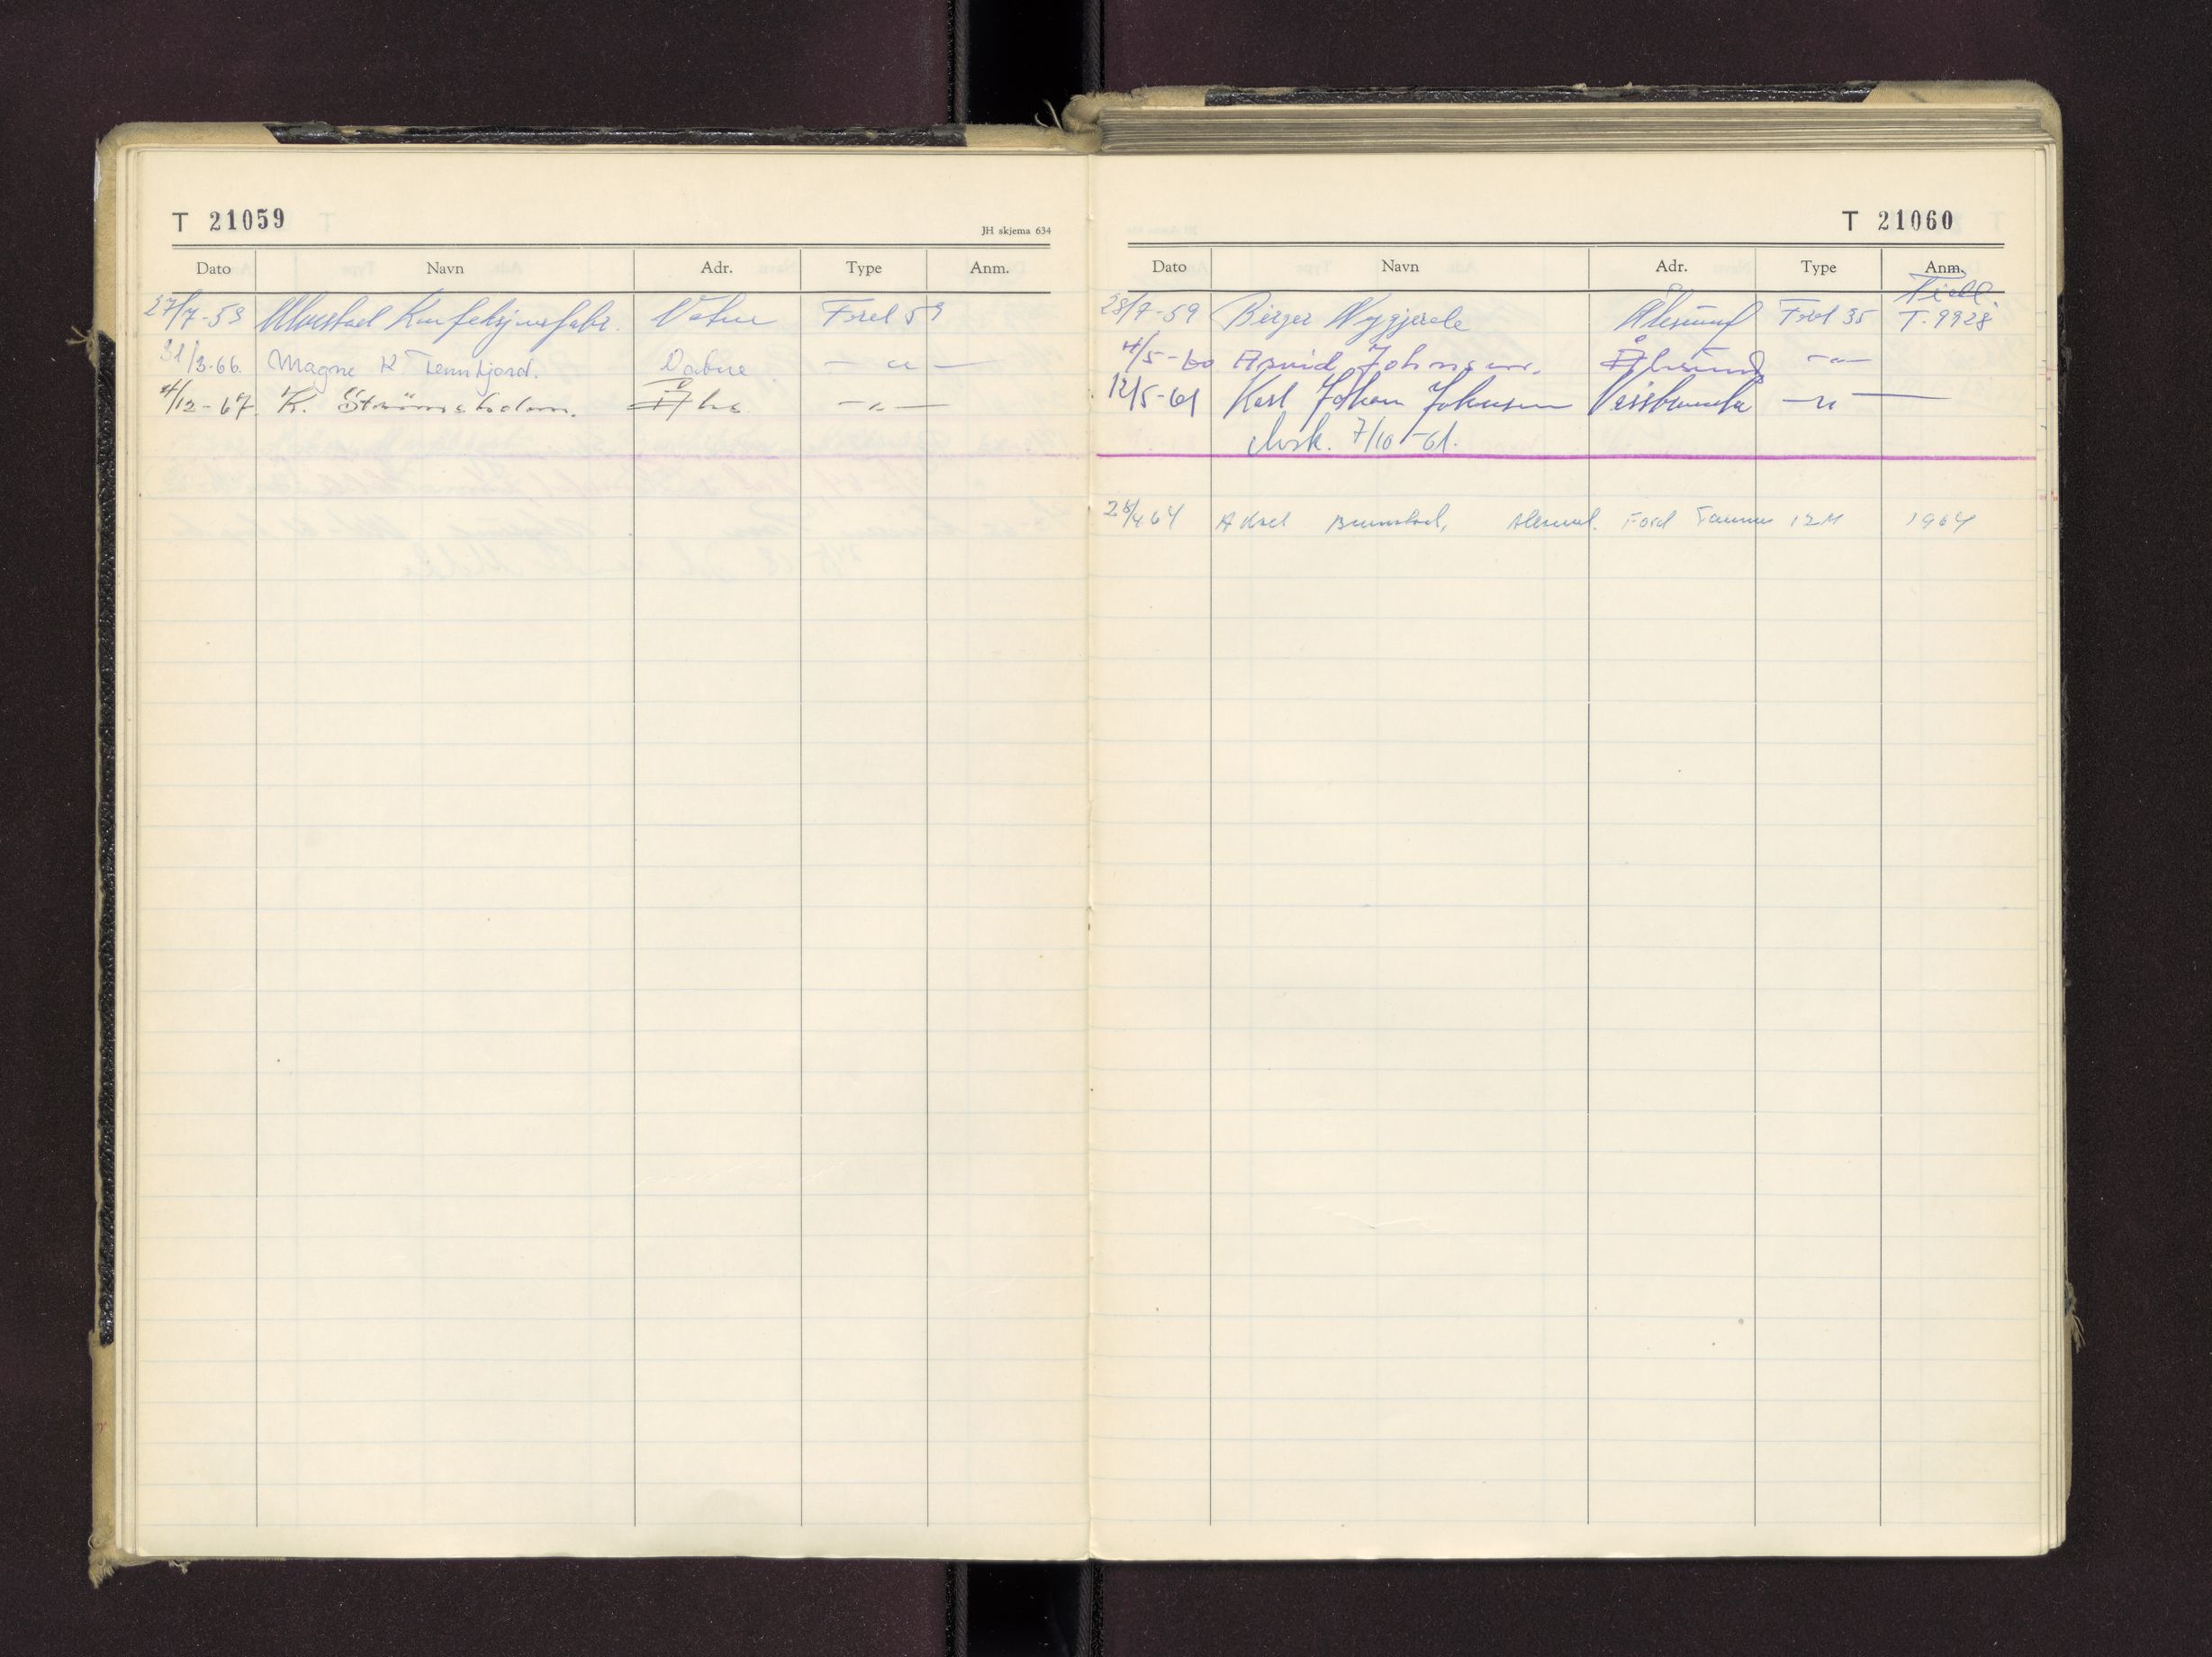 T 21059
JH skjema 634
Dato Navn Adr. Type Anm.
27/7-59 Ulvestad Konfeksjonsfabr. Vatne Ford 59
31/3-66. Magne K Tennfjord. Vatne — " —
4/12-67. K. Strømsholm. Åhs — " —
T 21060
Dato Navn Adr. Type Anm.
28/7-59 Birger Nygjerde Ålesund Ford 35 Tidl. T. 9928
4/5-60 Arvid Johnsen. Ålesund — " —
12/5-61 Karl Johan Johnsen — " —
Avsk. 7/10-61.
28/4 64 Aksel Brunstad, Alesund. Ford Taunus 12M 1964